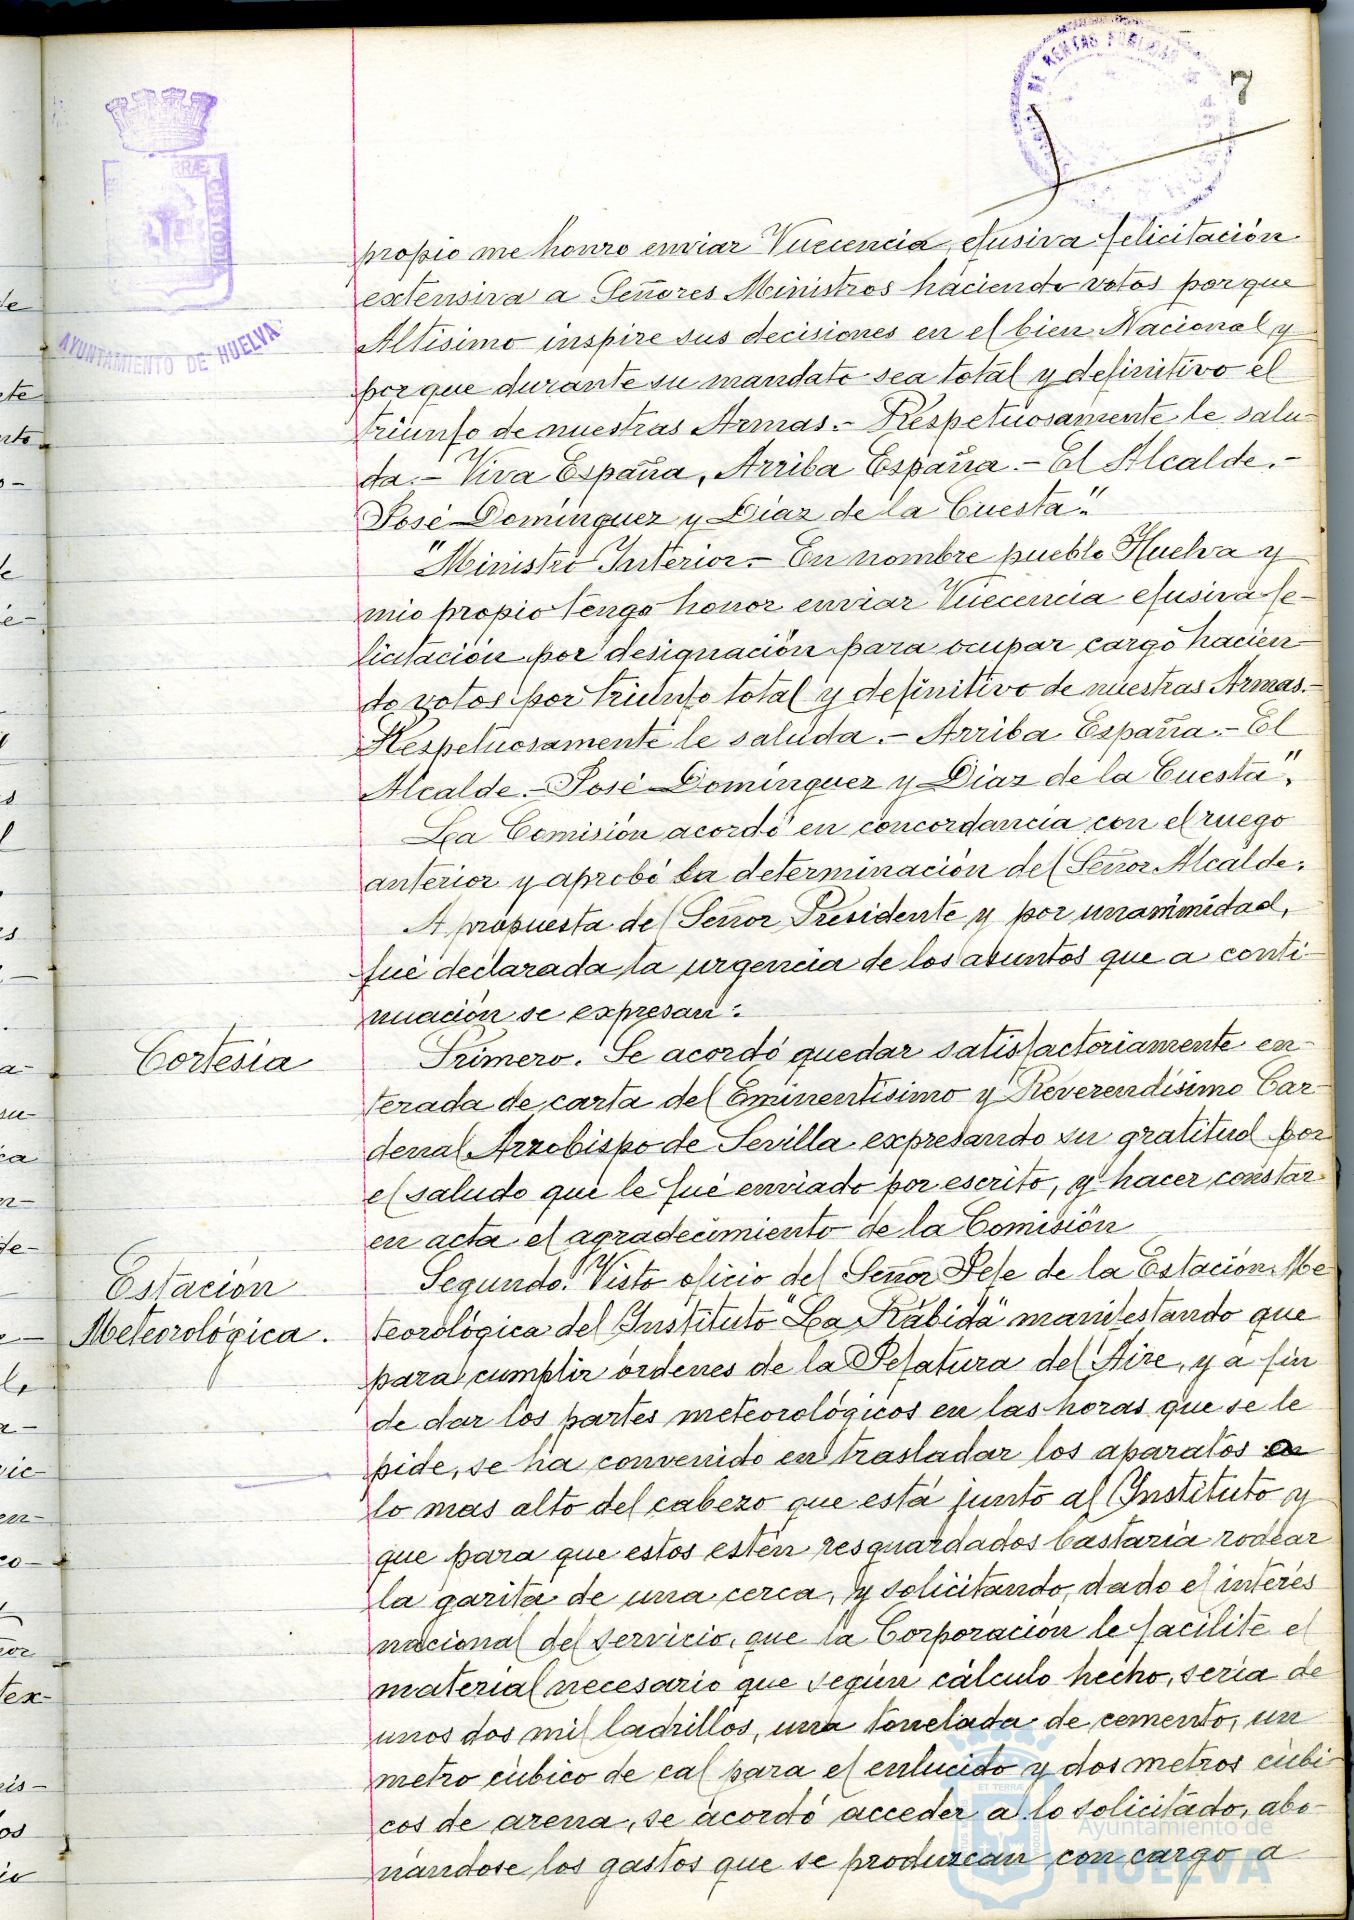 7
AYUNTAMIENTO DE HUELVA
propio me honro enviar Vuecencia efusiva felicitación
extensiva a Señores Ministros haciendo votos porque
Altisimo inspire sus decisiones en el bien Nacional y
porque durante su mandato sea total y definitivo el
triunfo de nuestras Armas.- Respetuosamente le salu-
da.- Viva España, Arriba España.- El Alcalde.-
José Domínguez y Díaz de la Cuesta".
"Ministro Interior.- En nombre pueblo Huelva y
mio propio tengo honor enviar Vuecencia efusiva fe-
licitación por designación para ocupar cargo hacien-
do votos por triunfo total y definitivo de nuestras Armas.-
Respetuosamente le saluda.- Arriba España.- El
Alcalde.- José Domínguez y Diaz de la Cuesta".
La Comisión acordó en concordancia con el ruego
anterior y aprobó la determinación del Señor Alcalde.
A propuesta del Señor Presidente y por unanimidad,
fué declarada la urgencia de los asuntos que a conti-
nuación se expresan:
Cortesía
Primero. Se acordó quedar satisfactoriamente en-
terada de carta del Eminentísimo y Reverendísimo Car-
denal Arzobispo de Sevilla expresando su gratitud por
el saludo que le fué enviado por escrito, y hacer constar
en acta el agradecimiento de la Comisión
Estación
Meteorológica.
Segundo. Visto oficio del Señor Jefe de la Estación Me
teorológica del Instituto "La Rábida" manifestando que
para cumplir órdenes de la Jefatura del Aire, y a fin
de dar los partes meteorológicos en las horas que se le
pide, se ha convenido en trasladar los aparatos a
lo mas alto del cabezo que está junto al Instituto y
que para que estos estén resguardados bastaría rodear
la garita de una cerca, y solicitando, dado el interés
nacional del servicio, que la Corporación le facilite el
material necesario que según cálculo hecho, sería de
unos dos mil ladrillos, una tonelada de cemento, un
metro cúbico de cal para el enlucido y dos metros cúbi-
cos de arena, se acordó acceder a lo solicitado, abo-
nándose los gastos que se produzcan con cargo a
Ayuntamiento de
HUELVA